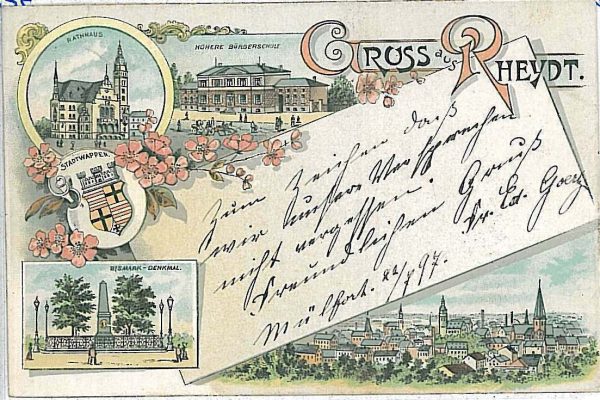 RATHHAUS
HÖHERE BÜRGERSCHULE
GRUSS aus RHEYDT.
STADTWAPPEN
BISMARK-DENKMAL.
Zum Zeichen daß
wir unsere Versprechen
nicht vergessen.
Freundlichen Gruß
Fr. Ed. Goertz
Mülfort. 97.